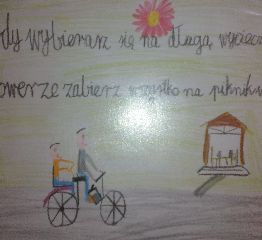 dy wybierasz się na długą wyciecz
owerze zabierz wszystko na piknik w